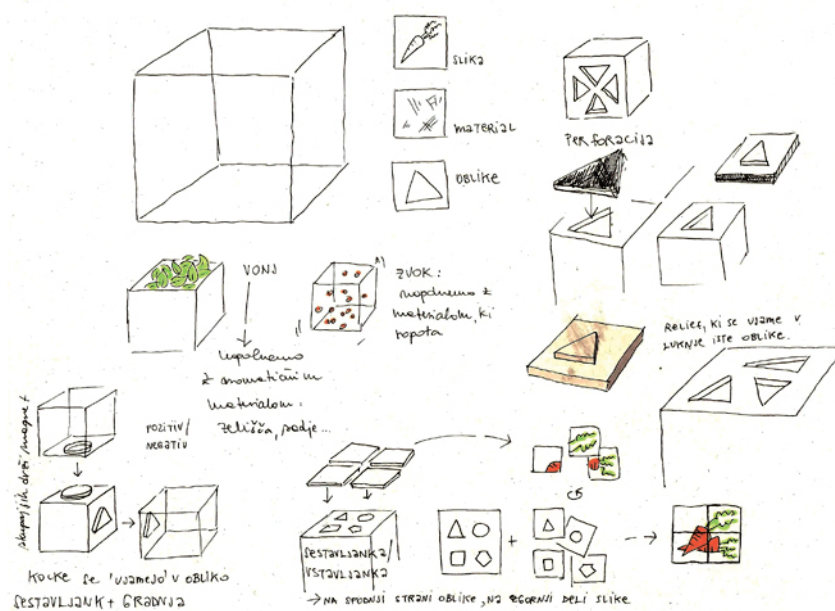 SLIKA
MATERIAL
OBLIKE
PERFORACIJA
VONJ
napolnemo
z aromatičnim
materialom:
zelišča, sadje...
ZVOK:
napolnemo z
materialom, ki
ropota
RELIEF, KI SE UJAME V
LUKNJE ISTE OBLIKE.
skupaj jih drži magnet
POZITIV/
NEGATIV
KOCKE SE 'UJAMEJO' V OBLIKO
SESTAVLJANK + GRADNJA
SESTAVLJANKA/
VSTAVLJANKA
→ NA SPODNJI STRANI OBLIKE, NA ZGORNJI DELI SLIKE